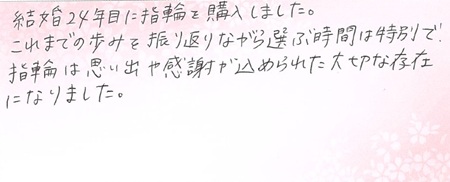 結婚24年目に指輪を購入しました。
これまでの歩みを振り返りながら選ぶ時間は特別で、
指輪は思い出や感謝が込められた大切な存在
になりました。